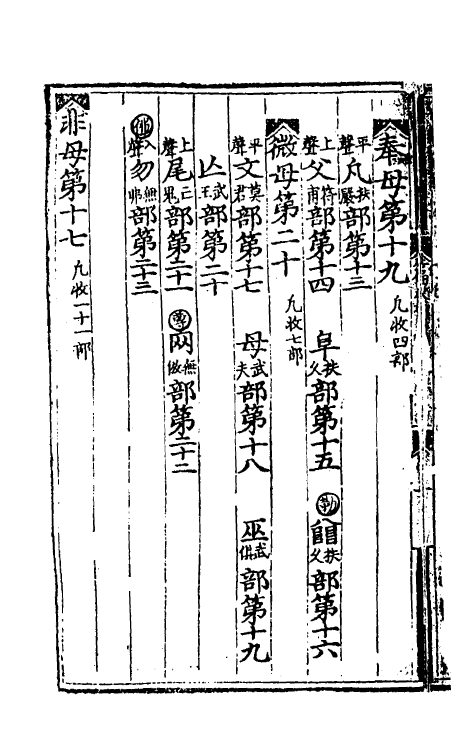 奉母第十九 凢收四部
平聲 凡 扶嚴 部第十三
上聲 父 符甫 部第十四 阜 扶久 部第十五 𨺅 扶久 部第十六
微母第二十 凢收七部
平聲 文 莫君 部第十七 毋 武夫 部第十八 巫 武俱 部第十九
亾 武王 部第二十
上聲 尾 亡鬼 部第二十一 网 無倣 部第二十二
入聲 勿 無弗 部第二十三
非母第十七 凢收一十一部